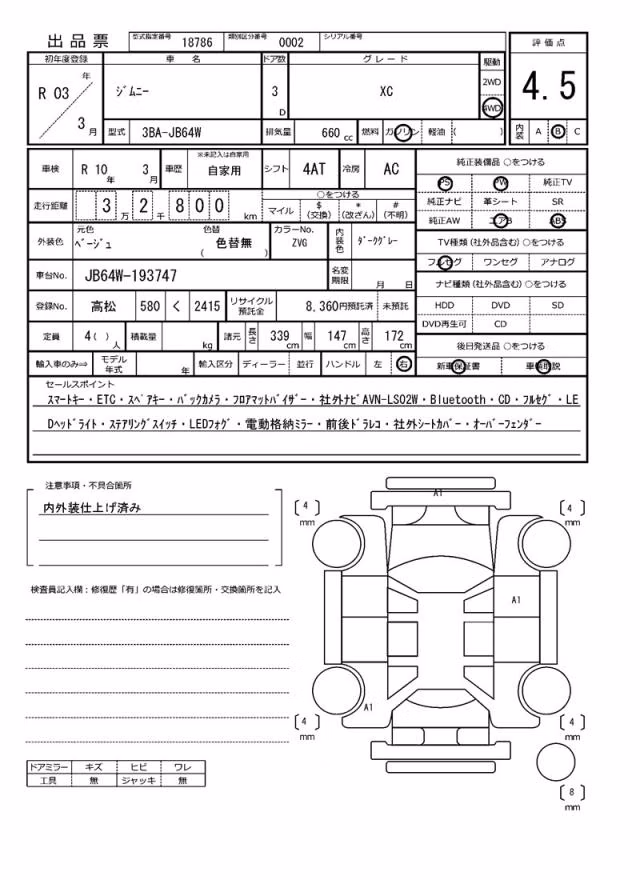 出品票 型式指定番号 18786 類別区分番号 0002 シリアル番号
評価点
4.5
初年度登録 車名 ドア数 グレード 駆動
R 03 年 3 月 ジムニー 3 D XC 2WD 4WD
型式 3BA-JB64W 排気量 660 cc 燃料 ガソリン 軽油 ( )
内装 A B C
車検 R 10 年 3 月 車歴 ※未記入は自家用 自家用 シフト 4AT 冷房 AC
走行距離 3 万 2 千 8 0 0 km ○をつける
マイル $ (交換) * (改ざん) # (不明)
外装色 元色 ベージュ 色替 ( 色替無 ) カラーNo. ZVG 内装色 ダークグレー
車台No. JB64W-193747 名変期限 月 日
登録No. 高松 580 く 2415 リサイクル預託金 8,360円預託済 未預託
定員 4( ) 人 積載量 kg 諸元 長さ 339 cm 幅 147 cm 高さ 172 cm
輸入車のみ⇒ モデル年式 年 輸入区分 ディーラー ・ 並行 ハンドル 左 ・ 右
純正装備品 ○をつける
PS PW 純正TV
純正ナビ 革シート SR
純正AW エアB ABS
TV種類 (社外品含む) ○をつける
フルセグ ワンセグ アナログ
ナビ種類 (社外品含む) ○をつける
HDD DVD SD
DVD再生可 CD
後日発送品 ○をつける
新車保証書 車輌取説
セールスポイント
スマートキー・ETC・スペアキー・バックカメラ・フロアマットバイザー・社外ナビAVN-LS02W・Bluetooth・CD・フルセグ・LE
Dヘッドライト・ステアリングスイッチ・LEDフォグ・電動格納ミラー・前後ドラレコ・社外シートカバー・オーバーフェンダー
注意事項・不具合箇所
内外装仕上げ済み
検査員記入欄：修復歴「有」の場合は修復箇所・交換箇所を記入
ドアミラー キズ ヒビ ワレ
工具 無 ジャッキ 無
A1
4 mm
4 mm
A1
A1
4 mm
4 mm
8 mm